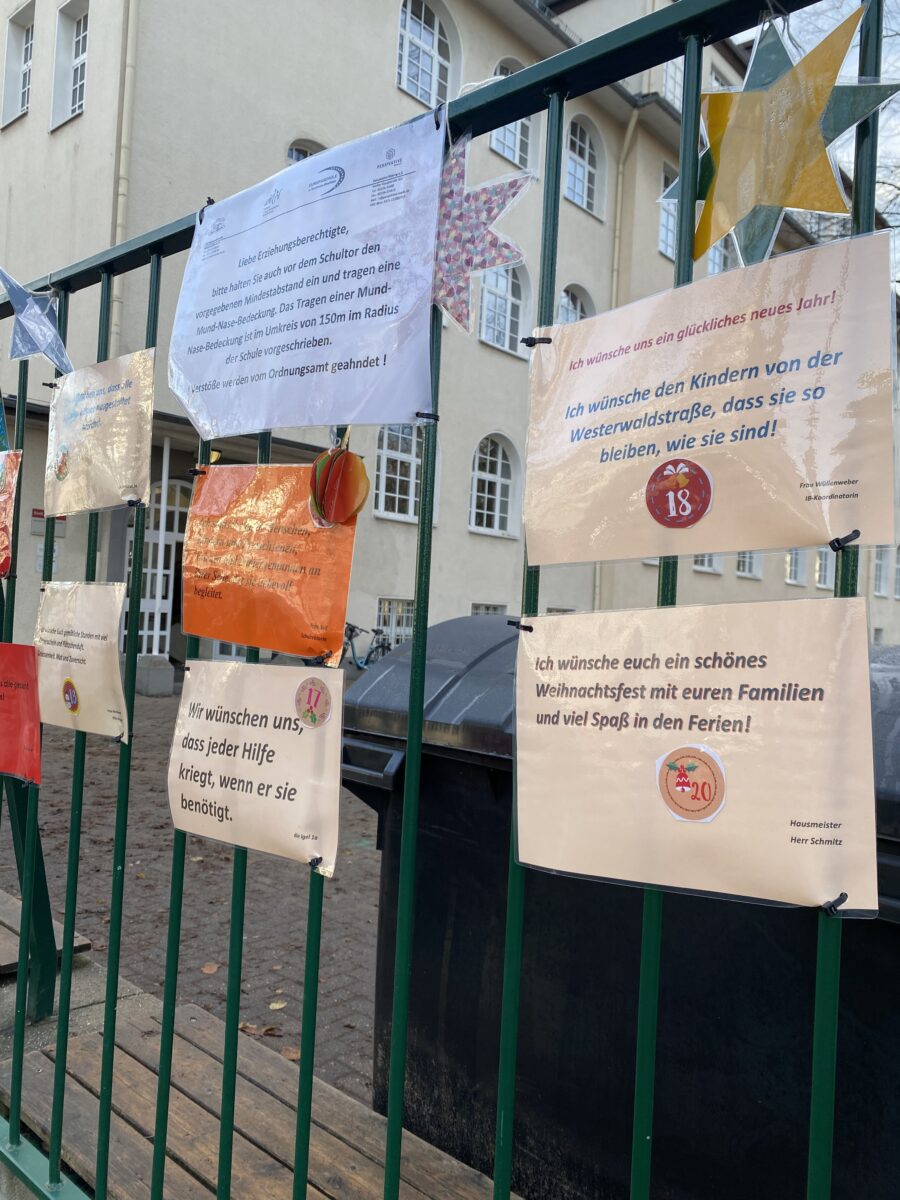 EUROPASCHULE
PERSPEKTIVE
Liebe Erziehungsberechtigte,
bitte halten Sie auch vor dem Schultor den
vorgegebenen Mindestabstand ein und tragen eine
Mund-Nase-Bedeckung. Das Tragen einer Mund-
Nase-Bedeckung ist im Umkreis von 150m im Radius
der Schule vorgeschrieben.
Verstöße werden vom Ordnungsamt geahndet !
Ich wünsche uns ein glückliches neues Jahr!
Ich wünsche den Kindern von der
Westerwaldstraße, dass sie so
bleiben, wie sie sind!
18
Frau Wüllenweber
IB-Koordinatorin
uns, dass alle
begleitet.
Wir wünschen uns,
dass jeder Hilfe
kriegt, wenn er sie
benötigt.
17
die Igel 1a
Ich wünsche euch ein schönes
Weihnachtsfest mit euren Familien
und viel Spaß in den Ferien!
20
Hausmeister
Herr Schmitz
wünsche Euch gemütliche Stunden mit viel
Mut und Zuversicht.